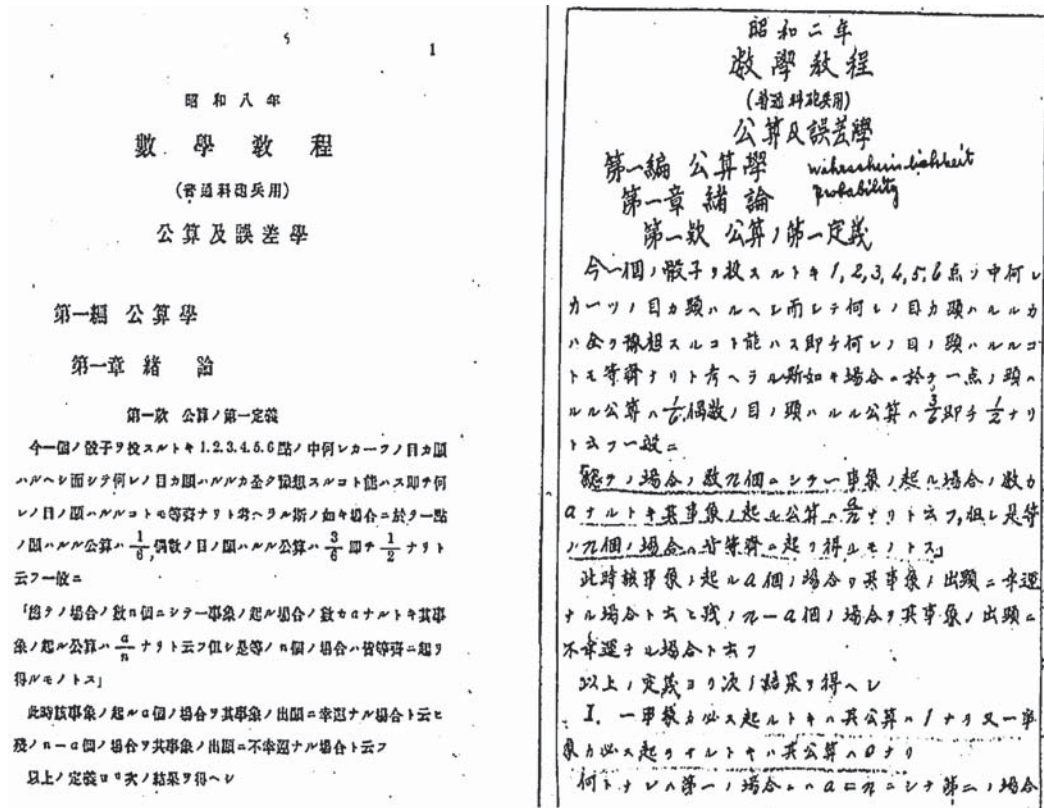 1
昭和八年
數學教程
(普通科砲兵用)
公算及誤差學
第一編 公算學
第一章 緒論
第一款 公算ノ第一定義
今一個ノ骰子ヲ投スルトキ1.2.3.4.5.6點ノ中何レカ一ツノ目カ顯
ハルヘシ而シテ何レノ目カ顯ハルルカ全ク豫想スルコト能ハス即チ何
レノ目ノ顯ハルルコトモ等齊ナリト考ヘラル斯ノ如キ場合ニ於テ一點
ノ顯ハルル公算ハ1/6,偶數ノ目ノ顯ハルル公算ハ3/6即チ1/2ナリト
云フ一般ニ
「總テノ場合ノ數n個ニシテ一事象ノ起ル場合ノ數カaナルトキ其事
象ノ起ル公算ハa/nナリト云フ但レ是等ノn個ノ場合ハ皆等齊ニ起リ
得ルモノトス」
此時該事象ノ起ルa個ノ場合ヲ其事象ノ出顯ニ幸運ナル場合ト云ヒ
殘ノn−a個ノ場合ヲ其事象ノ出顯ニ不幸運ナル場合ト云フ
以上ノ定義ヨリ次ノ結果ヲ得ヘシ
昭和二年
数學教程
(普通科砲兵用)
公算及誤差學
第一編 公算學 wahrscheinlichkeit
第一章 緒論 probability
第一款 公算ノ第一定義
今一個ノ骰子ヲ投スルトキ1,2,3,4,5,6点ノ中何レ
カ一ツノ目カ顕ハルヘシ而シテ何レノ目カ顕ハルルカ
ハ全ク豫想スルコト能ハス即チ何レノ目ノ顕ハルルコ
トモ等齊ナリト考ヘラル斯如キ場合ニ於テ一点ノ顕ハ
ルル公算ハ1/6,偶数ノ目ノ顕ハルル公算ハ3/6即チ1/2ナリ
ト云フ一般ニ
「総テノ場合ノ数n個ニシテ一事象ノ起ル場合ノ数カ
aナルトキ其事象ノ起ル公算ハa/nナリト云フ,但レ是等
ノn個ノ場合ハ皆等齊ニ起リ得ルモノトス」
此時該事象ノ起ルa個ノ場合ヲ其事象ノ出顕ニ幸運
ナル場合ト云ヒ残ノn−a個ノ場合ヲ其事象ノ出顕ニ
不幸運ナル場合ト云フ
以上ノ定義ヨリ次ノ結果ヲ得ヘシ
I. 一事象カ必ス起ルトキハ其公算ハ1ナリ又一事
象カ必ス起ラサルトキハ其公算ハ0ナリ
何トナレハ第一ノ場合ニハa=nニシテ第二ノ場合